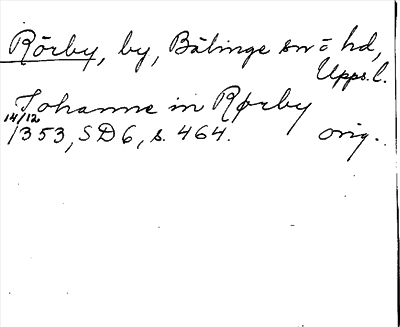 Rörby, by, Bälinge sn o hd,
Upps. l.
Johanne in Rørby
14/12
1353, SD6, s. 464. orig.